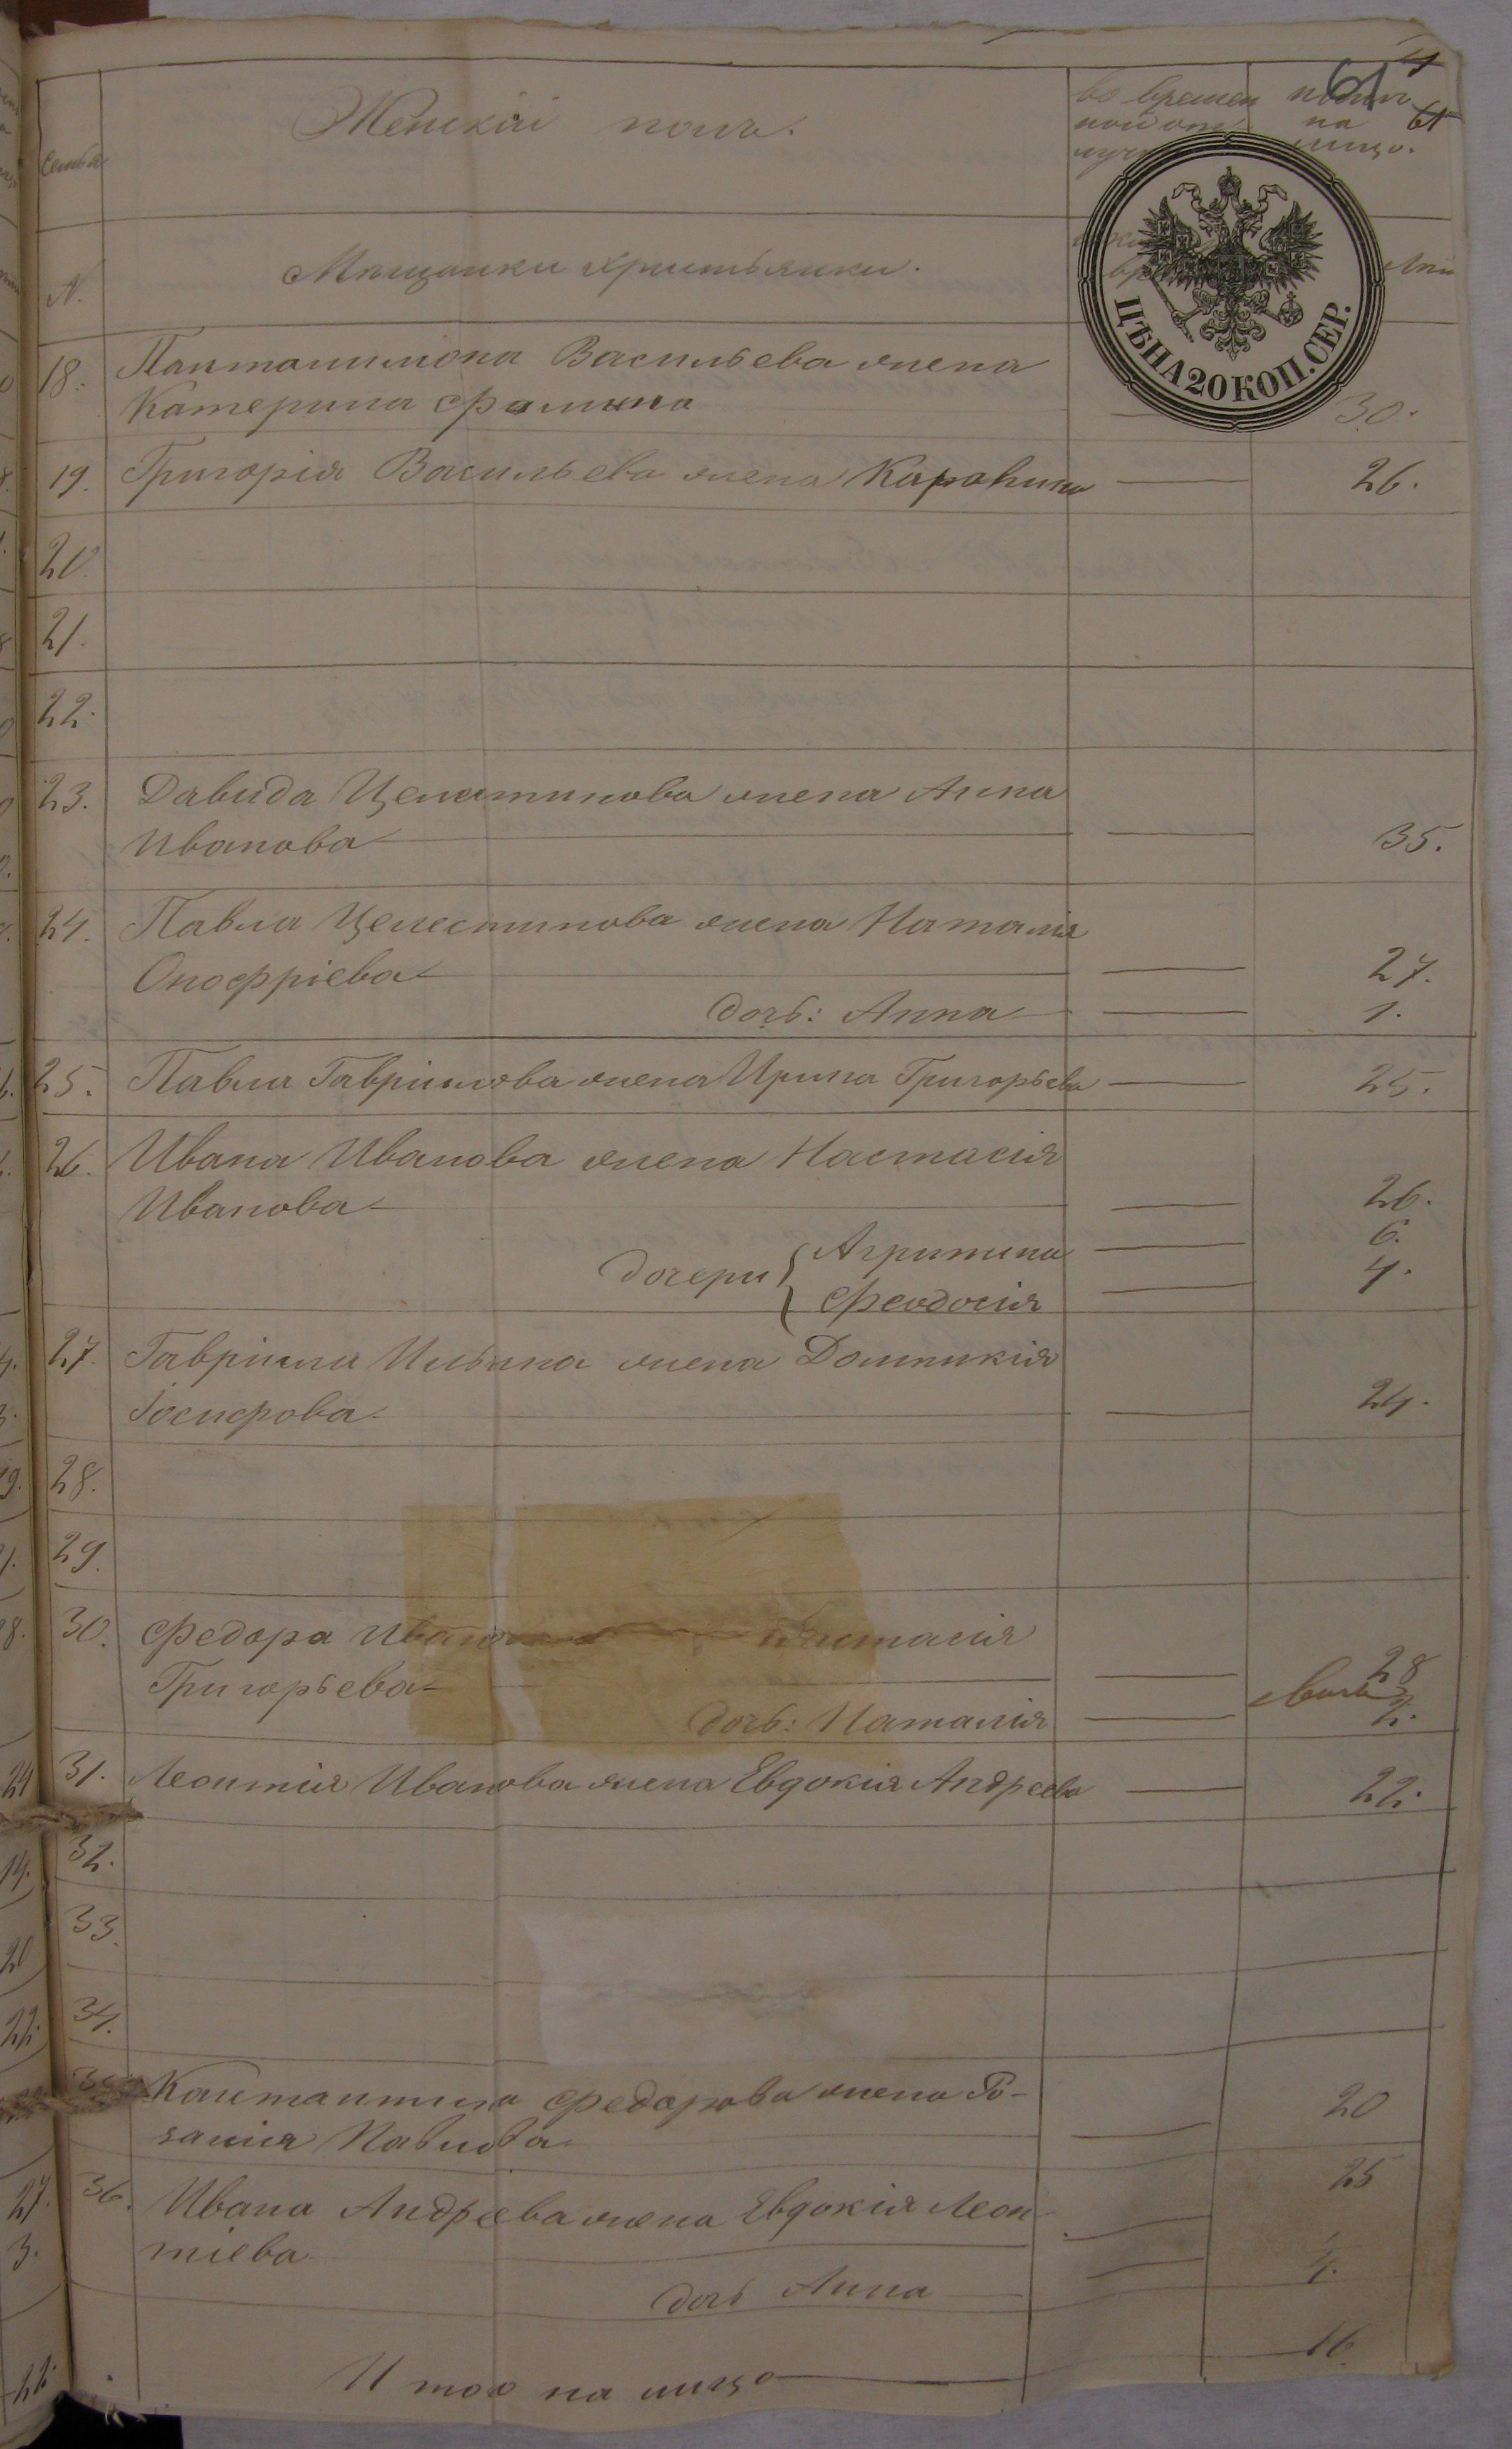 61
61
Семья
Женскій полъ.
во времен
ной от
луч
на
лицо.
N.
Мѣщанки християнки.
Лѣта
ЦѢНА 20 КОП. СЕР.
18. Панталимона Васильева жена
Катерина Фомина — 30.
19. Григорія Васильева жена Каролина — 26.
20.
21.
22.
23. Давида Целестинова жена Анна
Иванова — 35.
24. Павла Целестинова жена Наталія
Онофріева — 27.
дочь: Анна — 1.
25. Павла Гавриилова жена Ирина Григорьева — 25.
26. Ивана Иванова жена Настасия
Иванова — 26.
дочери { Агрипина — 6.
Феодосія — 4.
27. Гавріила Ильина жена Домникія
Іосифова — 24.
28.
29.
30. Федора Иван Анастасія
Григорьева — 28
дочь: Наталія — 2.
31. Леонтія Иванова жена Евдокія Андреева — 22.
32.
33.
34.
35. Константина Федорова жена Ро-
залия Павлова — 20
36. Ивана Андреева жена Евдокія Леон
тіева — 25
дочь Анна — 4.
Итого на лицо — 16.